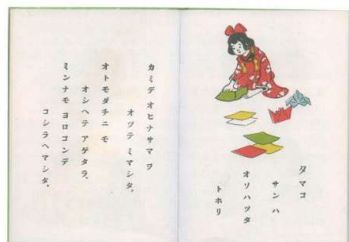 タマコ
サンハ
オソハツタ
トホリ
カミデ オヒナサマ ヲ
オツテ ミマシタ。
オトモダチニ モ
オシヘテ アゲタラ、
ミンナモ ヨロコンデ
コシラヘマシタ。